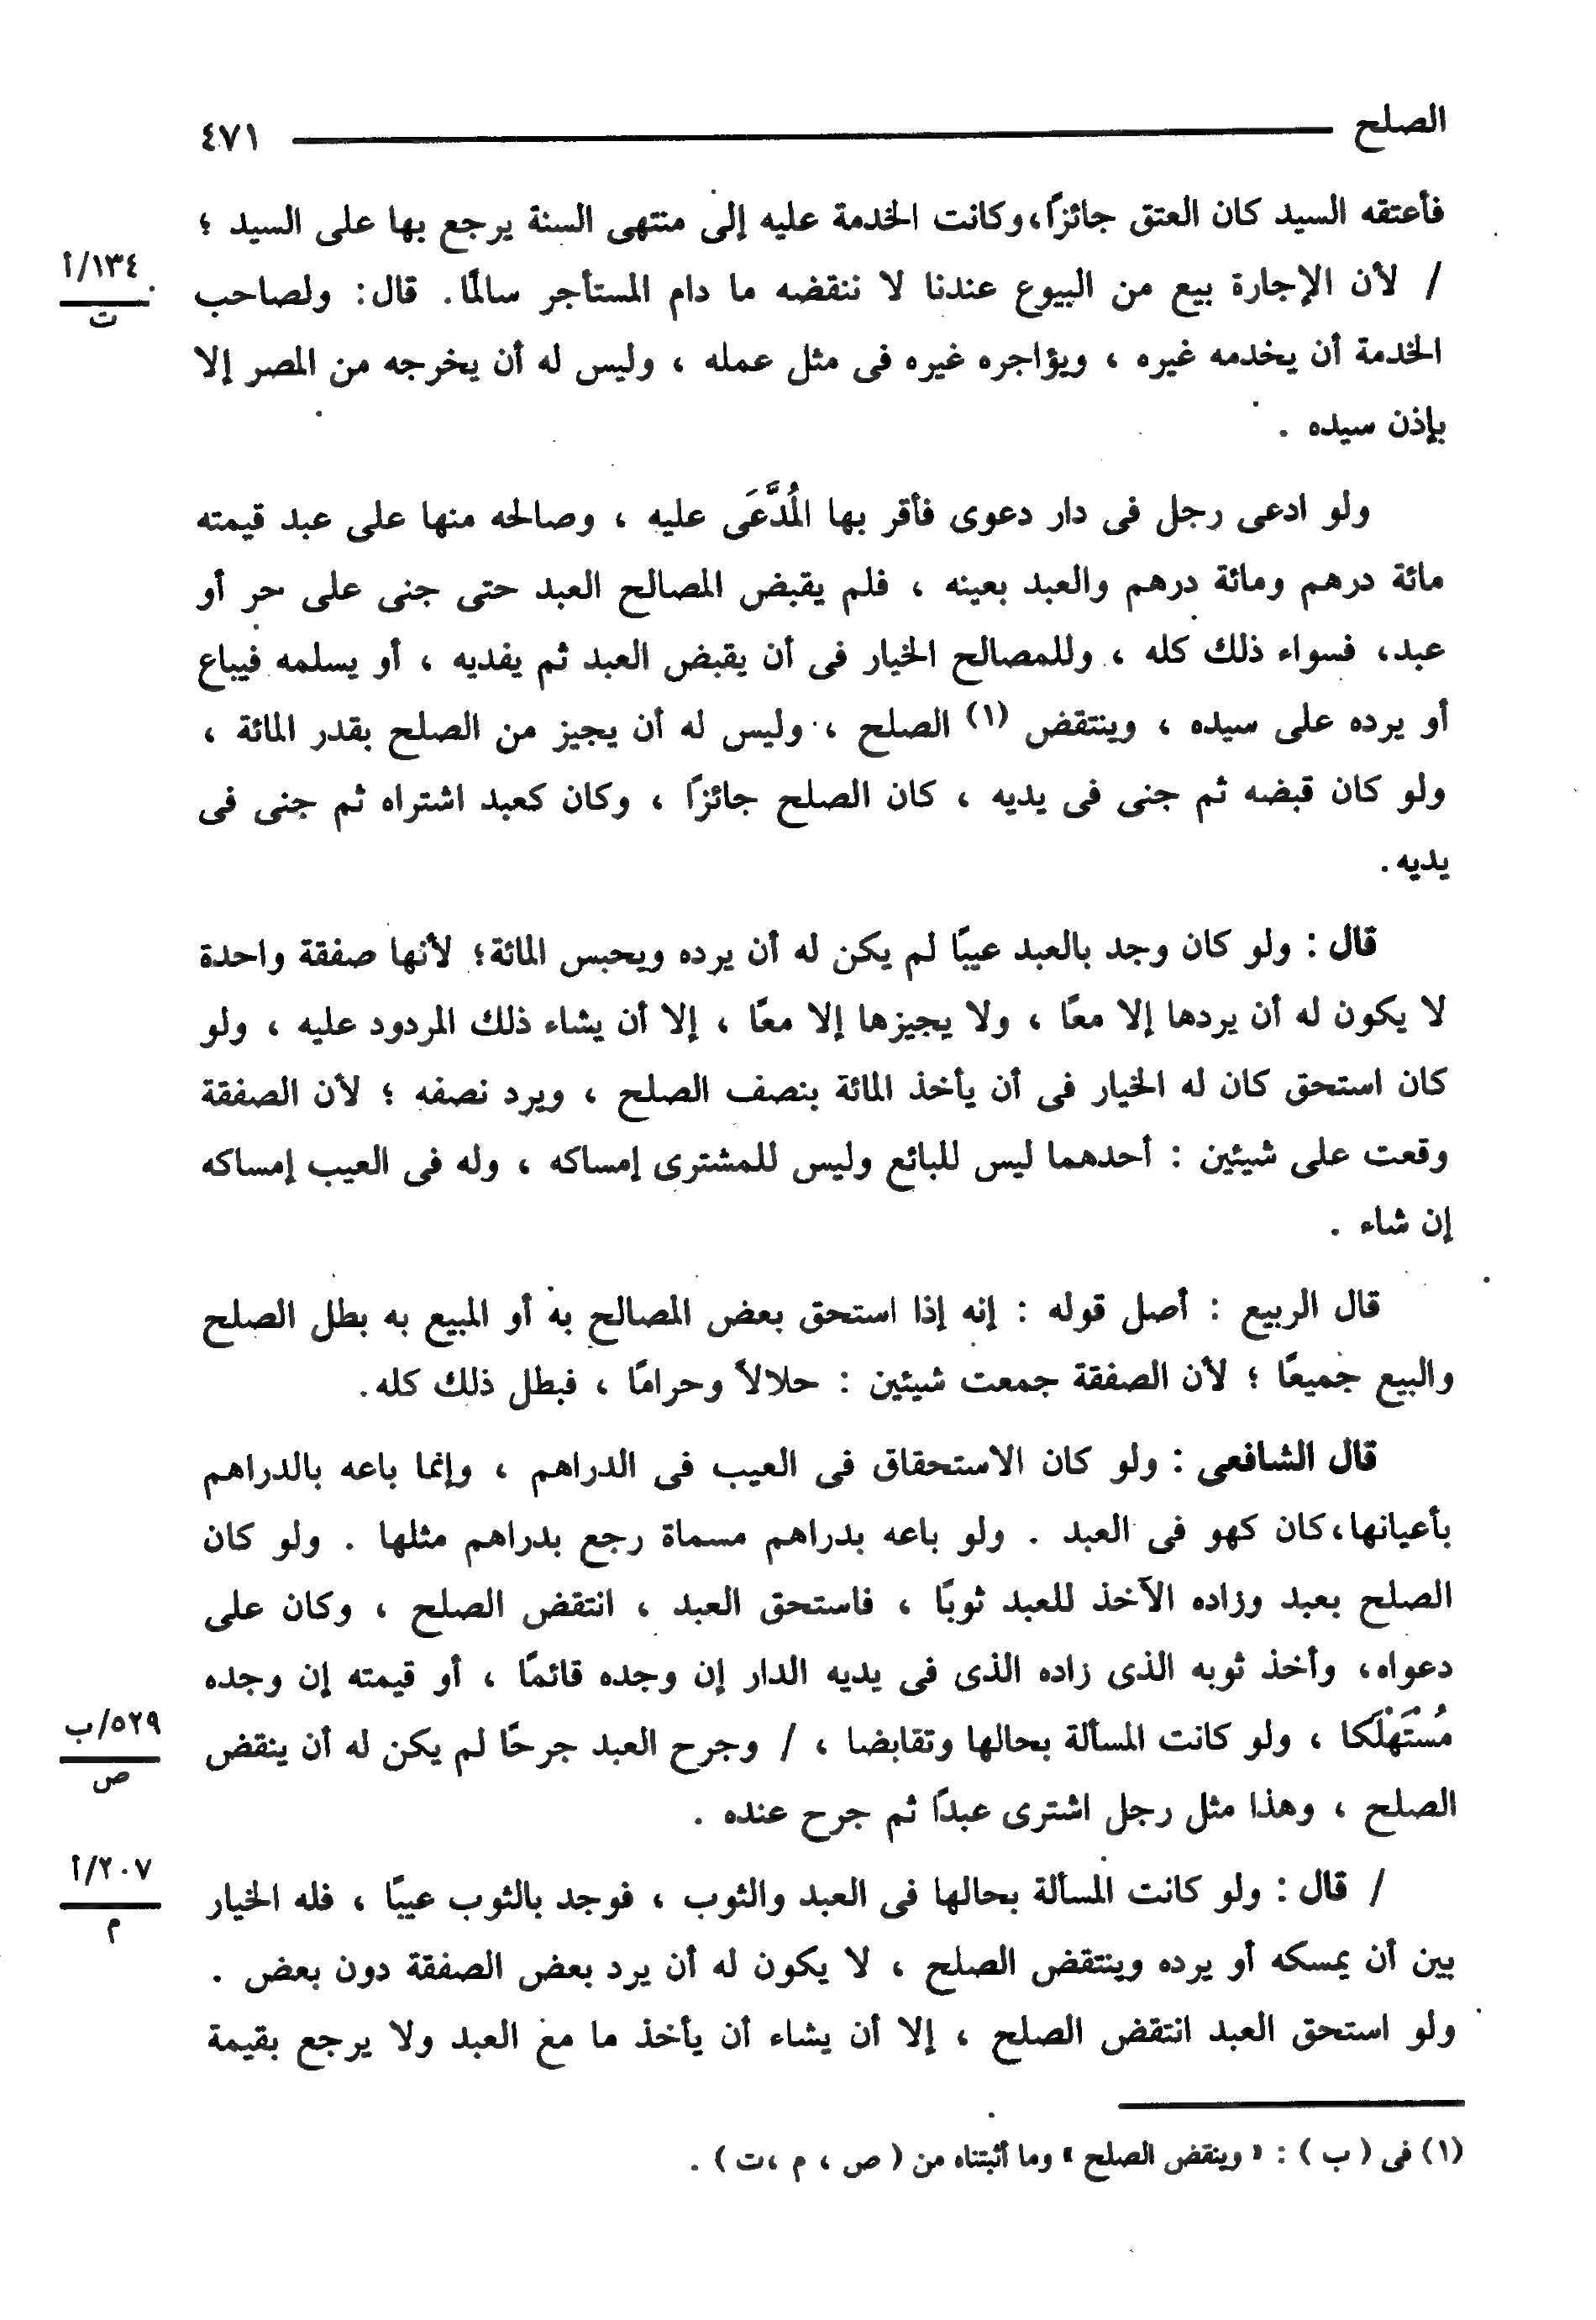 الصلح ٤٧١
فأعتقه السيد كان العتق جائزًا،وكانت الخدمة عليه إلى منتهى السنة يرجع بها على السيد ؛
/ لأن الإجارة بيع من البيوع عندنا لا ننقضه ما دام المستأجر سالمًا. قال: ولصاحب
١٣٤/أ
ت
الخدمة أن يخدمه غيره ، ويؤاجره غيره فى مثل عمله ، وليس له أن يخرجه من المصر إلا
بإذن سيده .
ولو ادعى رجل فى دار دعوى فأقر بها المُدَّعَى عليه ، وصالحه منها على عبد قيمته
مائة درهم ومائة درهم والعبد بعينه ، فلم يقبض المصالح العبد حتى جنى على حر أو
عبد، فسواء ذلك كله ، وللمصالح الخيار فى أن يقبض العبد ثم يفديه ، أو يسلمه فيباع
أو يرده على سيده ، وينتقض (١) الصلح ، وليس له أن يجيز من الصلح بقدر المائة ،
ولو كان قبضه ثم جنى فى يديه ، كان الصلح جائزًا ، وكان كعبد اشتراه ثم جنى فى
يديه.
قال : ولو كان وجد بالعبد عيبًا لم يكن له أن يرده ويحبس المائة؛ لأنها صفقة واحدة
لا يكون له أن يردها إلا معًا ، ولا يجيزها إلا معًا ، إلا أن يشاء ذلك المردود عليه ، ولو
كان استحق كان له الخيار فى أن يأخذ المائة بنصف الصلح ، ويرد نصفه ؛ لأن الصفقة
وقعت على شيئين : أحدهما ليس للبائع وليس للمشترى إمساكه ، وله فى العيب إمساكه
إن شاء .
قال الربيع : أصل قوله : إنه إذا استحق بعض المصالح به أو المبيع به بطل الصلح
والبيع جميعًا ؛ لأن الصفقة جمعت شيئين : حلالاً وحرامًا ، فبطل ذلك كله.
قال الشافعى : ولو كان الاستحقاق فى العيب فى الدراهم ، وإنما باعه بالدراهم
بأعيانها،كان كهو فى العبد . ولو باعه بدراهم مسماة رجع بدراهم مثلها . ولو كان
الصلح بعبد وزاده الآخذ للعبد ثوبًا ، فاستحق العبد ، انتقض الصلح ، وكان على
دعواه، وأخذ ثوبه الذى زاده الذى فى يديه الدار إن وجده قائمًا ، أو قيمته إن وجده
مُسْتَهْلَكا ، ولو كانت المسألة بحالها وتقابضا ، / وجرح العبد جرحًا لم يكن له أن ينقض
٥٢٩/ب
ص
الصلح ، وهذا مثل رجل اشترى عبدًا ثم جرح عنده .
/ قال : ولو كانت المسألة بحالها فى العبد والثوب ، فوجد بالثوب عيبًا ، فله الخيار
٢٠٧/أ
م
بين أن يمسكه أو يرده وينتقض الصلح ، لا يكون له أن يرد بعض الصفقة دون بعض .
ولو استحق العبد انتقض الصلح ، إلا أن يشاء أن يأخذ ما مع العبد ولا يرجع بقيمة
(١) فى ( ب ) : « وينقض الصلح » وما أثبتناه من ( ص ، م ،ت ) .